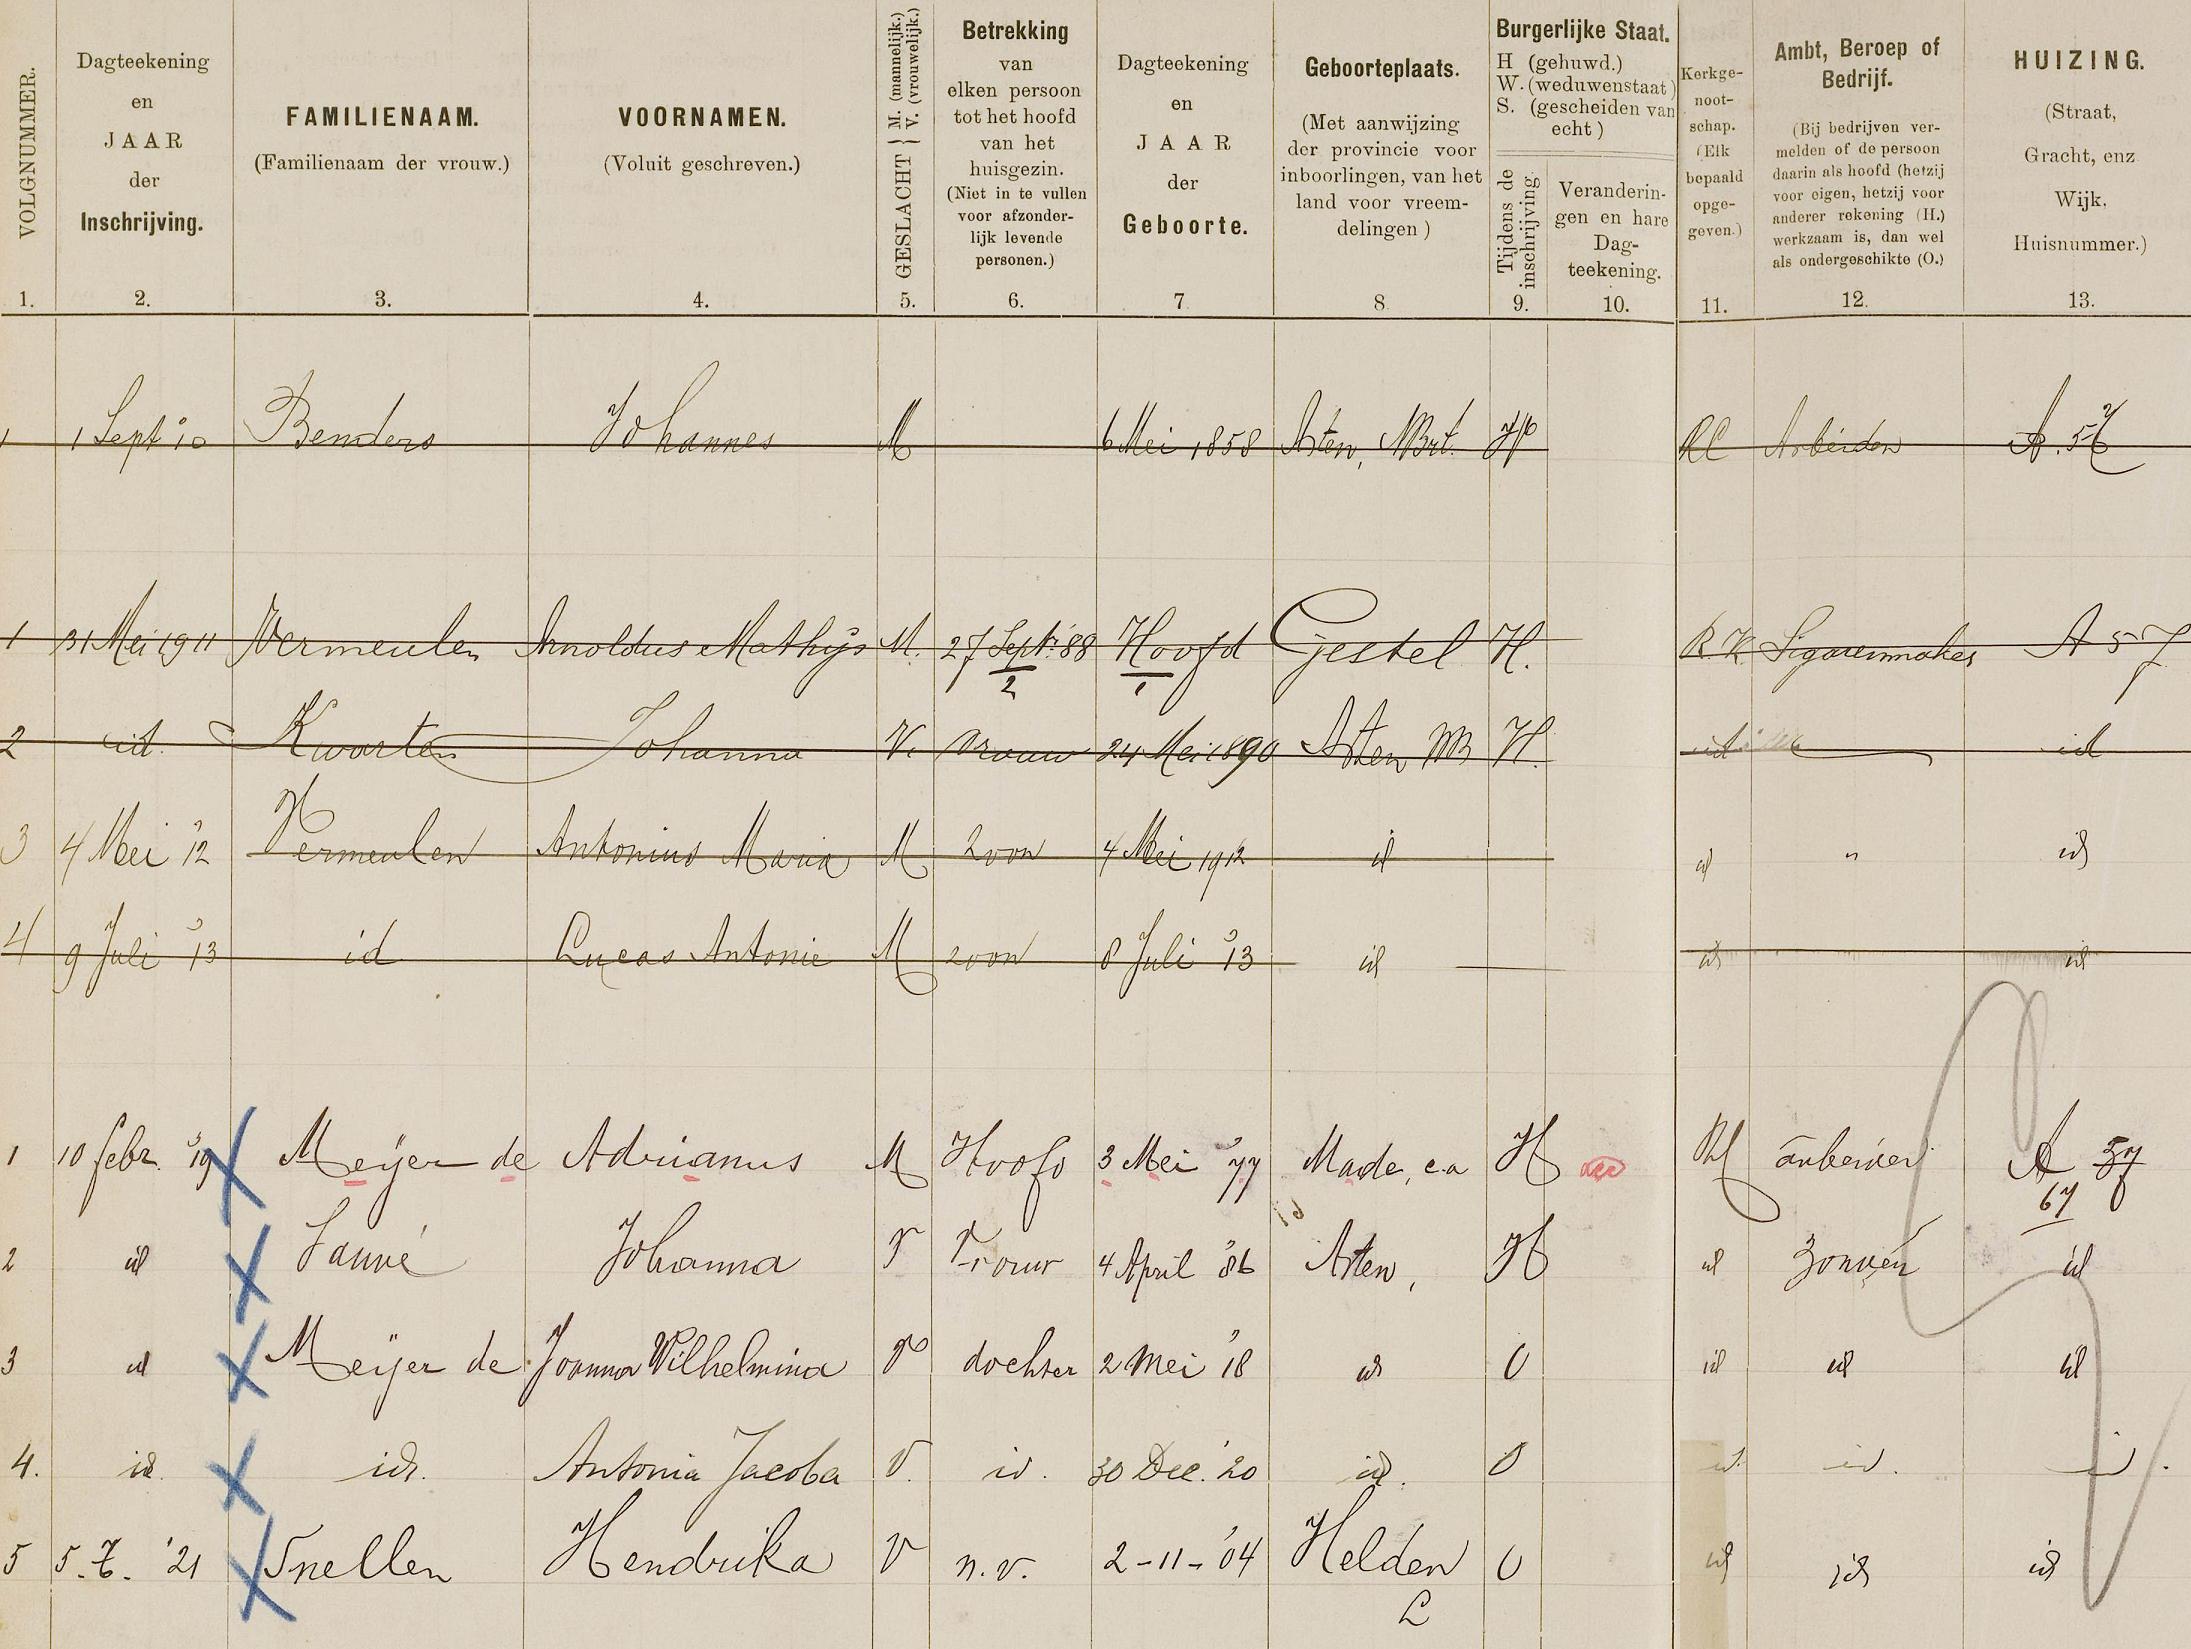 VOLGNUMMER.
1.
Dagteekening
en
JAAR
der
Inschrijving.
2.
FAMILIENAAM.
(Familienaam der vrouw.)
3.
VOORNAMEN.
(Voluit geschreven.)
4.
GESLACHT { M. (mannelijk.)
V. (vrouwelijk.)
5.
Betrekking
van
elken persoon
tot het hoofd
van het
huisgezin.
(Niet in te vullen
voor afzonder-
lijk levende
personen.)
6.
Dagteekening
en
JAAR
der
Geboorte.
7
Geboorteplaats.
(Met aanwijzing
der provincie voor
inboorlingen, van het
land voor vreem-
delingen)
8
Burgerlijke Staat.
H (gehuwd.)
W. (weduwenstaat)
S. (gescheiden van
echt)
Tijdens de
inschrijving.
9.
Veranderin-
gen en hare
Dag-
teekening.
10.
Kerkge-
noot-
schap.
(Elk
bepaald
opge-
geven.)
11.
Ambt, Beroep of
Bedrijf.
(Bij bedrijven ver-
melden of de persoon
daarin als hoofd (hetzij
voor eigen, hetzij voor
anderer rekening (H.)
werkzaam is, dan wel
als ondergeschikte (O.)
12.
HUIZING.
(Straat,
Gracht, enz
Wijk.
Huisnummer.)
13.
1 1 Sept '10 Benders Johannes M 6 Mei 1858 Asten, NBrt. H RC Arbeider A.
1 31 Mei 1911 Vermeulen Arnoldus Mathijs M. 27 Sept. '88 Hoofd Gestel H. R.K. Sigarenmaker A 57
2 1
2 id. Kwarten Johanna V. Vrouw 24 Mei 1890 Asten NB H. id id
3 4 Mei '12 Vermeulen Antonius Maria M Zoon 4 Mei 1912 id id " id
4 9 Juli '13 id Lucas Antonie M zoon 8 Juli '13 id id id
1 10 febr. '19 Meijer de Adrianus M Hoofd 3 Mei '77 Made, c.a H RC arbeider A 57
67
2 id Sanné Johanna V Vrouw 4 April '86 Asten, H id zonder id
3 id Meijer de Joanna Wilhelmina V dochter 2 Mei '18 id O id id id
4. id. id. Antonia Jacoba V. id. 30 Dec. '20 id. O id. id. id.
5 5. '21 Snellen Hendrika V n.v. 2-11-'04 Helden O id id id
L